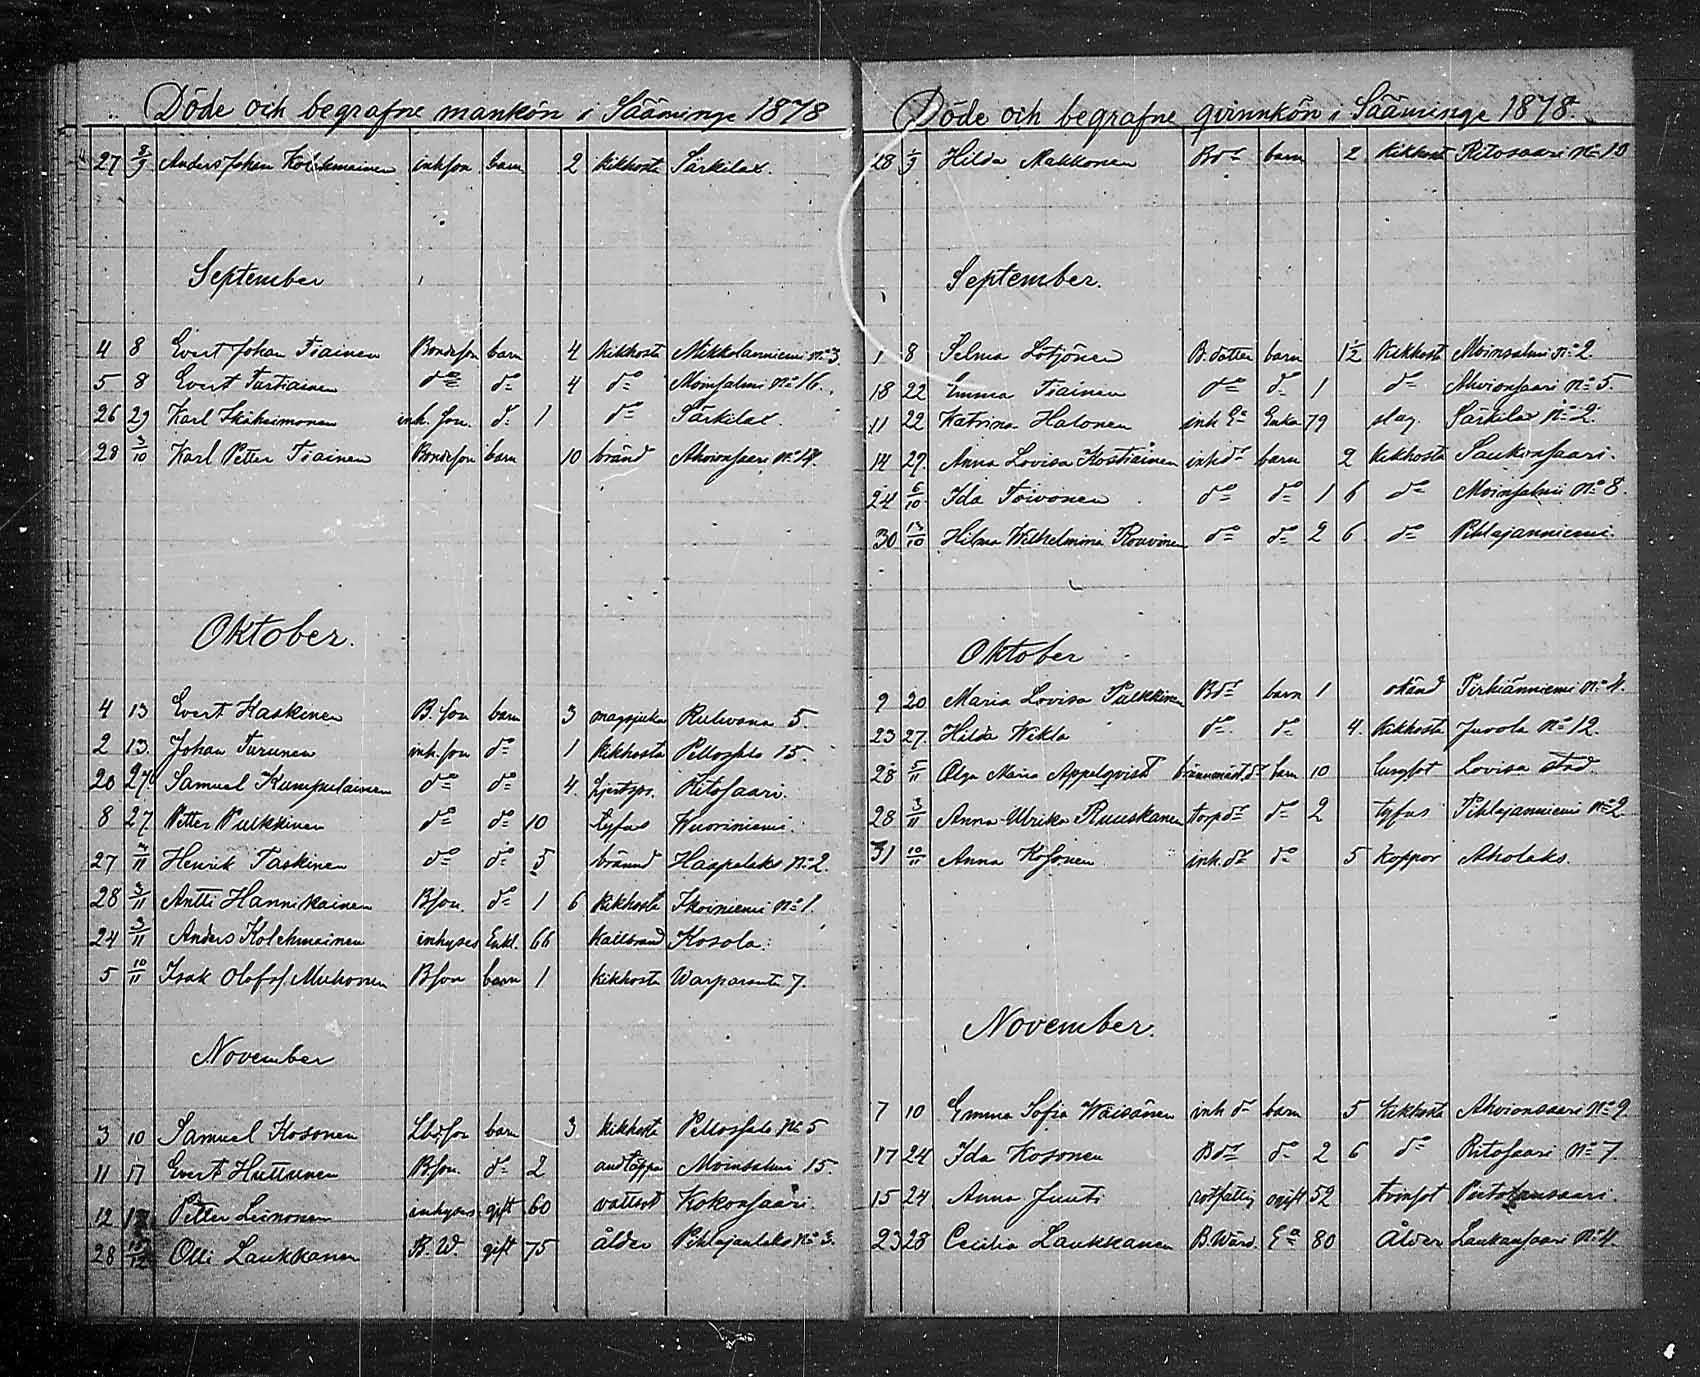 Döde och begrafne mankön i Sääminge 1878
27 8/9 Anders Johan Kolehmainen inh son barn 2 kikhosta Särkilax.
September
4 8 Evert Johan Tiainen Bondeson barn 4 kikhosta Mikkolanniemi No 3.
5 8 Evert Turtiainen do do 4 do Moinsalmi No 16.
26 29 Karl inh. son. do 1 do Särkilax.
28 3/10 Karl Petter Tiainen Bondeson barn 10 bränd Ahvionsaari No 14.
Oktober.
4 13 Evert Kaskinen B. son barn 3 magsjuka Ruluvana 5.
2 13 Johan Turunen inh. son do 1 kikhosta Pellossalo 15.
20 27 Samuel Kumpulainen do do 4. hjertsps. Ritosaari.
8 27 Petter Pulkkinen do do 10 tyfus Wuoriniemi.
27 3/11 Henrik Taskinen do do 5 brännd Haapalaks No 2.
28 3/11 Antti Hannikainen Bson. do 1 6 kikhosta Ikoinniemi No 1.
24 3/11 Anders Kolehmainen inhyses Enkl. 66 kallbrand Kosola.
5 10/11 Isak Olofss. Muhonen Bson barn 1 kikhosta Warparanta 7.
November
3 10 Samuel Kosonen Lbdson barn 3 kikhosta Pellossalo No 5
11 17 Evert Huttunen Bson. do 2 andtäppa Moinsalmi 15
12 17 Petter Leinonen inhyses gift 60 vattsot Kokonsaari.
28 15/12 Olli Laukkanen B. W gift 75 ålder Pihlajanlaks No 3.
Döde och begrafne qvinnkön i Sääminge 1878.
28 1/9 Hilda Makkonen Bdr barn 2 kikhost Ritosaari No 10
September.
1 8 Selma Lötjönen B. dotter barn 1½ kikhosta Moinsalmi No 2.
18 22 Emma Tiainen do do 1 do Ahvionsaari No 5.
11 22 Katrina Halonen inh Ea Enka 79 slag. Särkilax No 2.
14 29. Anna Lovisa Kostiainen inh dr barn 2 kikhosta Saukonsaari.
24 6/10 Ida Toivonen do do 1 6 do Moinsalmi No 8.
30 13/10 Hilma Wilhelmina Kouvinen do do 2 6 do Pihlajanniemi.
Oktober
9 20 Maria Lovisa Pulkkinen Bdr barn 1 okänd Pirhiänniemi No 4.
23 27. Hilda Wekla do do 4. kikhosta Juvola No 12.
28 5/11 Olga Maria Appelqvist brännmäst. dr barn 10 lungsot Lovisa stad.
28 3/11 Anna Ulrika Ruuskanen torp dr do 2 tyfus Pihlajanniemi No 2
31 10/11 Anna Kosonen inh. dr do 5 koppor Aholaks.
November.
7 10 Emma Sofia Wäisänen inh dr barn 5 kikhosta Ahvionsaari No 9
17 24 Ida Kosonen Bdr do 2 6 do Ritosaari No 7.
15 24 Anna Juuti rotfattig ogift 52 trinsot
23 28 Cecilia Laukkanen B. Wärd. Ea 80 Ålder Laukansaari No 4.